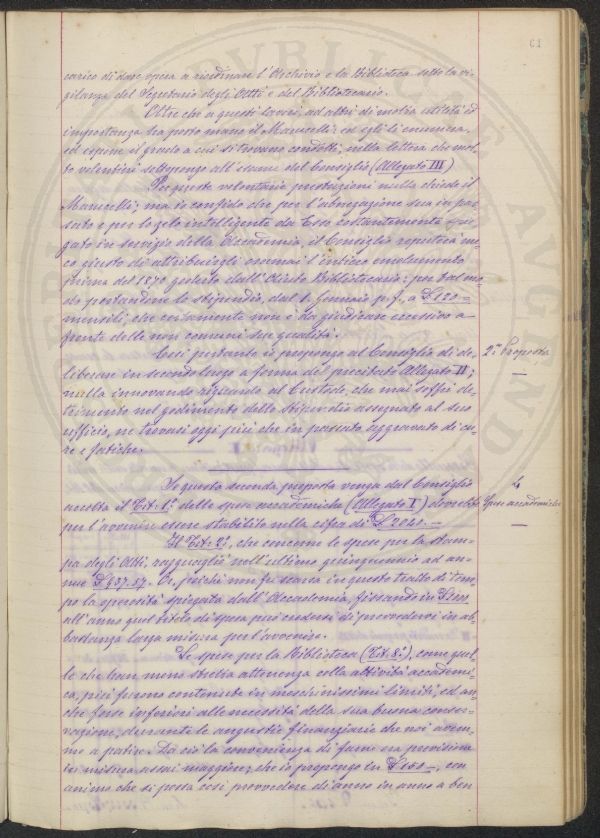 61
carico di dare opera a riordinare l'Archivio e la Biblioteca sotto la vi-
gilanza del Segretario degli Atti e del Bibliotecario.
Oltre che a questi lavori, ad altri di molta utilità ed
importanza ha posto mano il Marucelli: ed egli li enumera,
ed espone il grado a cui si trovano condotti, nella lettera che mol-
to volentieri sottopongo all'esame del Consiglio (Allegato III)
Per queste volontarie prestazioni nulla chiede il
Marucelli; ma io confido che per l'abnegazione sua in pas-
sato e per lo zelo intelligente da Esso costantemente spie-
gato in servizio della Accademia, il Consiglio reputerà me-
co giusto di attribuirgli oramai l'intiero emolumento
prima del 1870 goduto dall'Aiuto Bibliotecario: per tal mo-
do portandone lo stipendio, dal 1. Gennaio p. f., a £ 120 =
mensili, che certamente non è da giudicare eccessivo a
fronte delle non comuni sue qualità.
Così pertanto io propongo al Consiglio di de-
liberare in secondo luogo a forma del precitato Allegato II;
nulla innovando riguardo al Custode, che mai soffrì de-
trimento nel godimento dello stipendio assegnato al suo
ufficio, nè trovasi oggi più che in passato aggravato di cu-
re e fatiche.
2ª Proposta
Se questa seconda proposta venga dal Consiglio
accolta il Tit. 1º delle spese accademiche (Allegato I) dovrebbe
per l'avvenire essere stabilito nella cifra di £ 2040. —
Spese accademiche
Il Tit. 2º, che concerne le spese per la stam-
pa degli Atti, ragguagliò nell'ultimo quinquennio ad an-
nue £ 937.57. Or, poichè non fu scarsa in questo tratto di tem-
po la operosità spiegata dall'Accademia, fissando in
all'anno quel titolo di spesa può credersi di provvedervi in ab-
bastanza larga misura per l'avvenire.
Le spese per la Biblioteca (Tit. 8º), come quel-
le che han meno stretta attenenza colla attività accademi-
ca, più furono contenute in meschinissimi limiti, ed an-
che forse inferiori alle necessità della sua buona conser-
vazione, durante le angustie finanziarie che noi avem-
mo a patire. Da ciò la convenienza di farne ora previsione
in misura assai maggiore, che io propongo in £ 150 —, con
animo che si possa così provvedere di anno in anno a ben